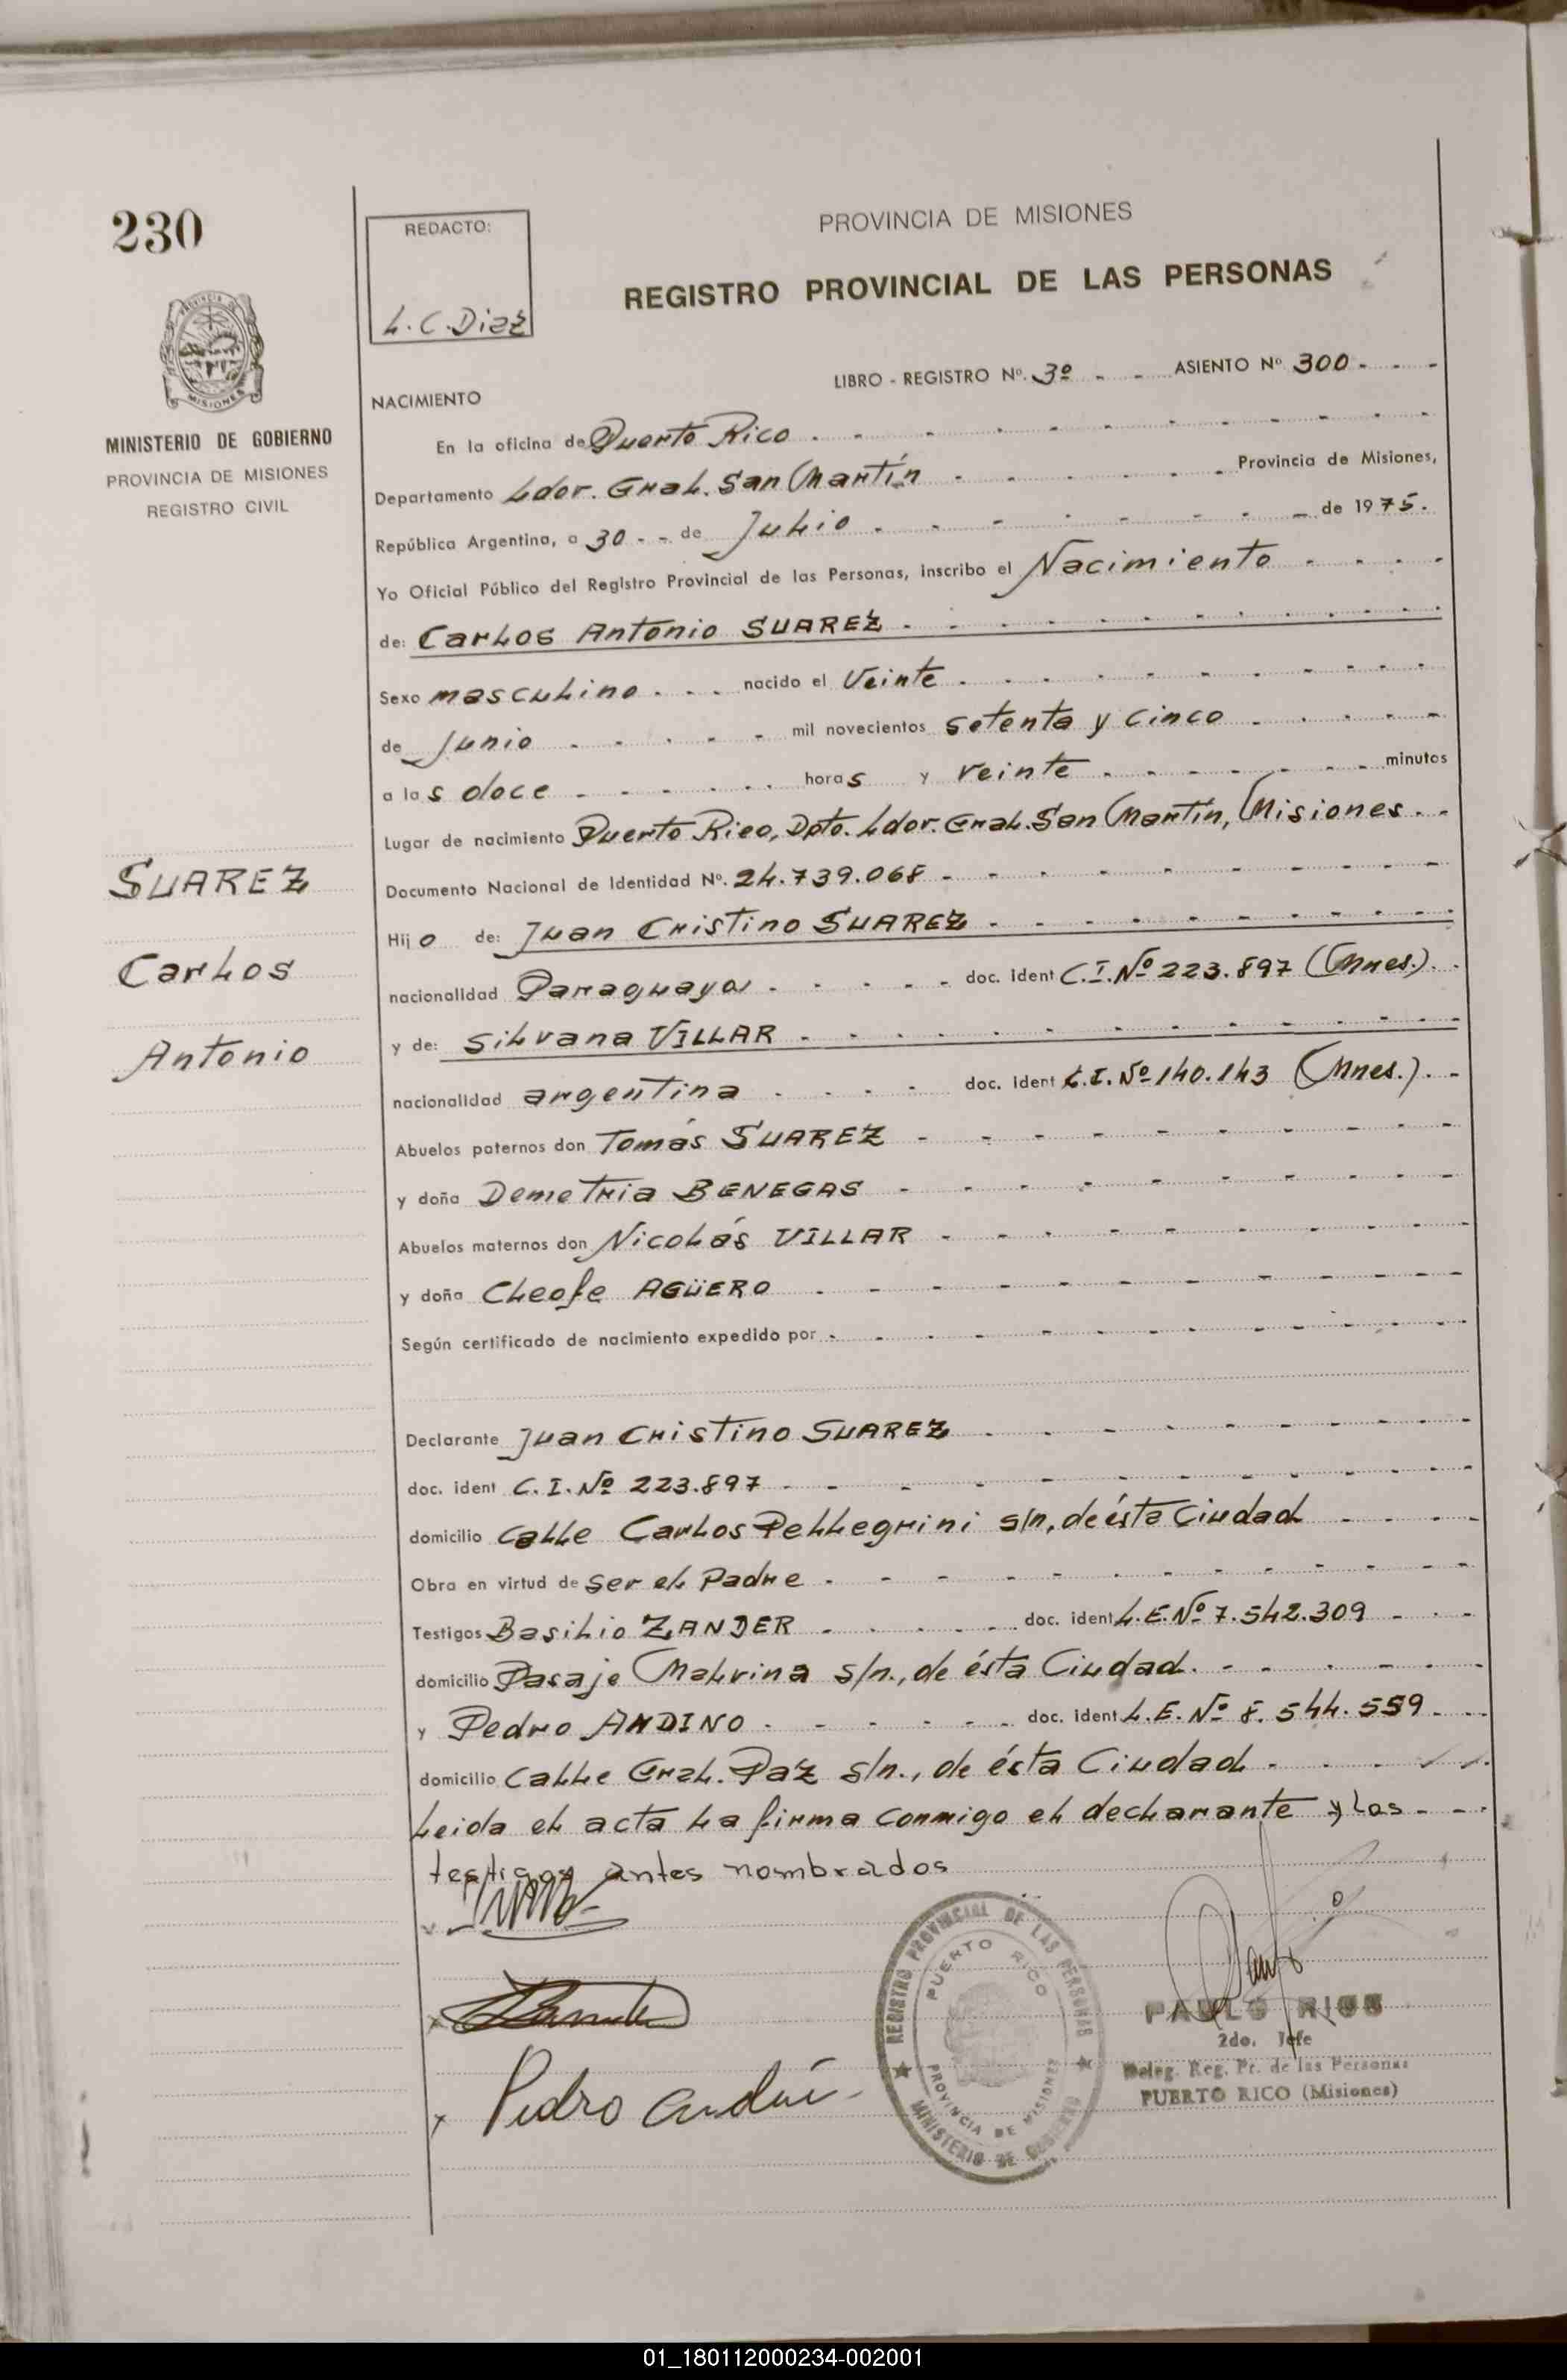 230
REDACTO:
L.C.Diaz
PROVINCIA DE MISIONES
REGISTRO PROVINCIAL DE LAS PERSONAS
MINISTERIO DE GOBIERNO
PROVINCIA DE MISIONES
REGISTRO CIVIL
LIBRO - REGISTRO Nº. 3º - - ASIENTO Nº 300 - - -
NACIMIENTO
En la oficina de Puerto Rico
Departamento Ldor. Gral. San Martín Provincia de Misiones,
República Argentina, a 30 - - de Julio de 1975.
Yo Oficial Público del Registro Provincial de las Personas, inscribo el Nacimiento
de: Carlos Antonio SUAREZ
Sexo masculino nacido el Veinte
de Junio mil novecientos setenta y cinco
a las doce horas y veinte minutos
Lugar de nacimiento Puerto Rico, Dpto. Ldor. Gral. San Martín, Misiones
Documento Nacional de Identidad Nº. 24.739.068
Hijo de: Juan Cristino SUAREZ
nacionalidad Paraguaya doc. ident C.I.Nº 223.897 (Mnes.)
y de: Silvana VILLAR
nacionalidad argentina doc. ident C.I. Nº 140.143 (Mnes.)
Abuelos paternos don Tomás SUAREZ
y doña Demetria BENEGAS
Abuelos maternos don Nicolás VILLAR
y doña Cleofe AGÜERO
Según certificado de nacimiento expedido por
Declarante Juan Cristino SUAREZ
doc. ident C.I. Nº 223.897
domicilio calle Carlos Pellegrini s/n, de ésta Ciudad
Obra en virtud de ser el Padre
Testigos Basilio ZANDER doc. ident L.E. Nº 7.542.309
domicilio Pasaje Malvina s/n., de ésta Ciudad.
y Pedro ANDINO doc. ident L.E. Nº 8.544.559
domicilio Calle Gral. Paz s/n., de ésta Ciudad
Leida el acta la firma conmigo el declarante y los
testigos antes nombrados
SUAREZ
Carlos
Antonio
Pedro
REGISTRO PROVINCIAL DE LAS PERSONAS
PUERTO RICO
PROVINCIA DE MISIONES
MINISTERIO DE GOBIERNO
PABLO RIOS
2do. Jefe
Deleg. Reg. Pr. de las Personas
PUERTO RICO (Misiones)
01_180112000234-002001